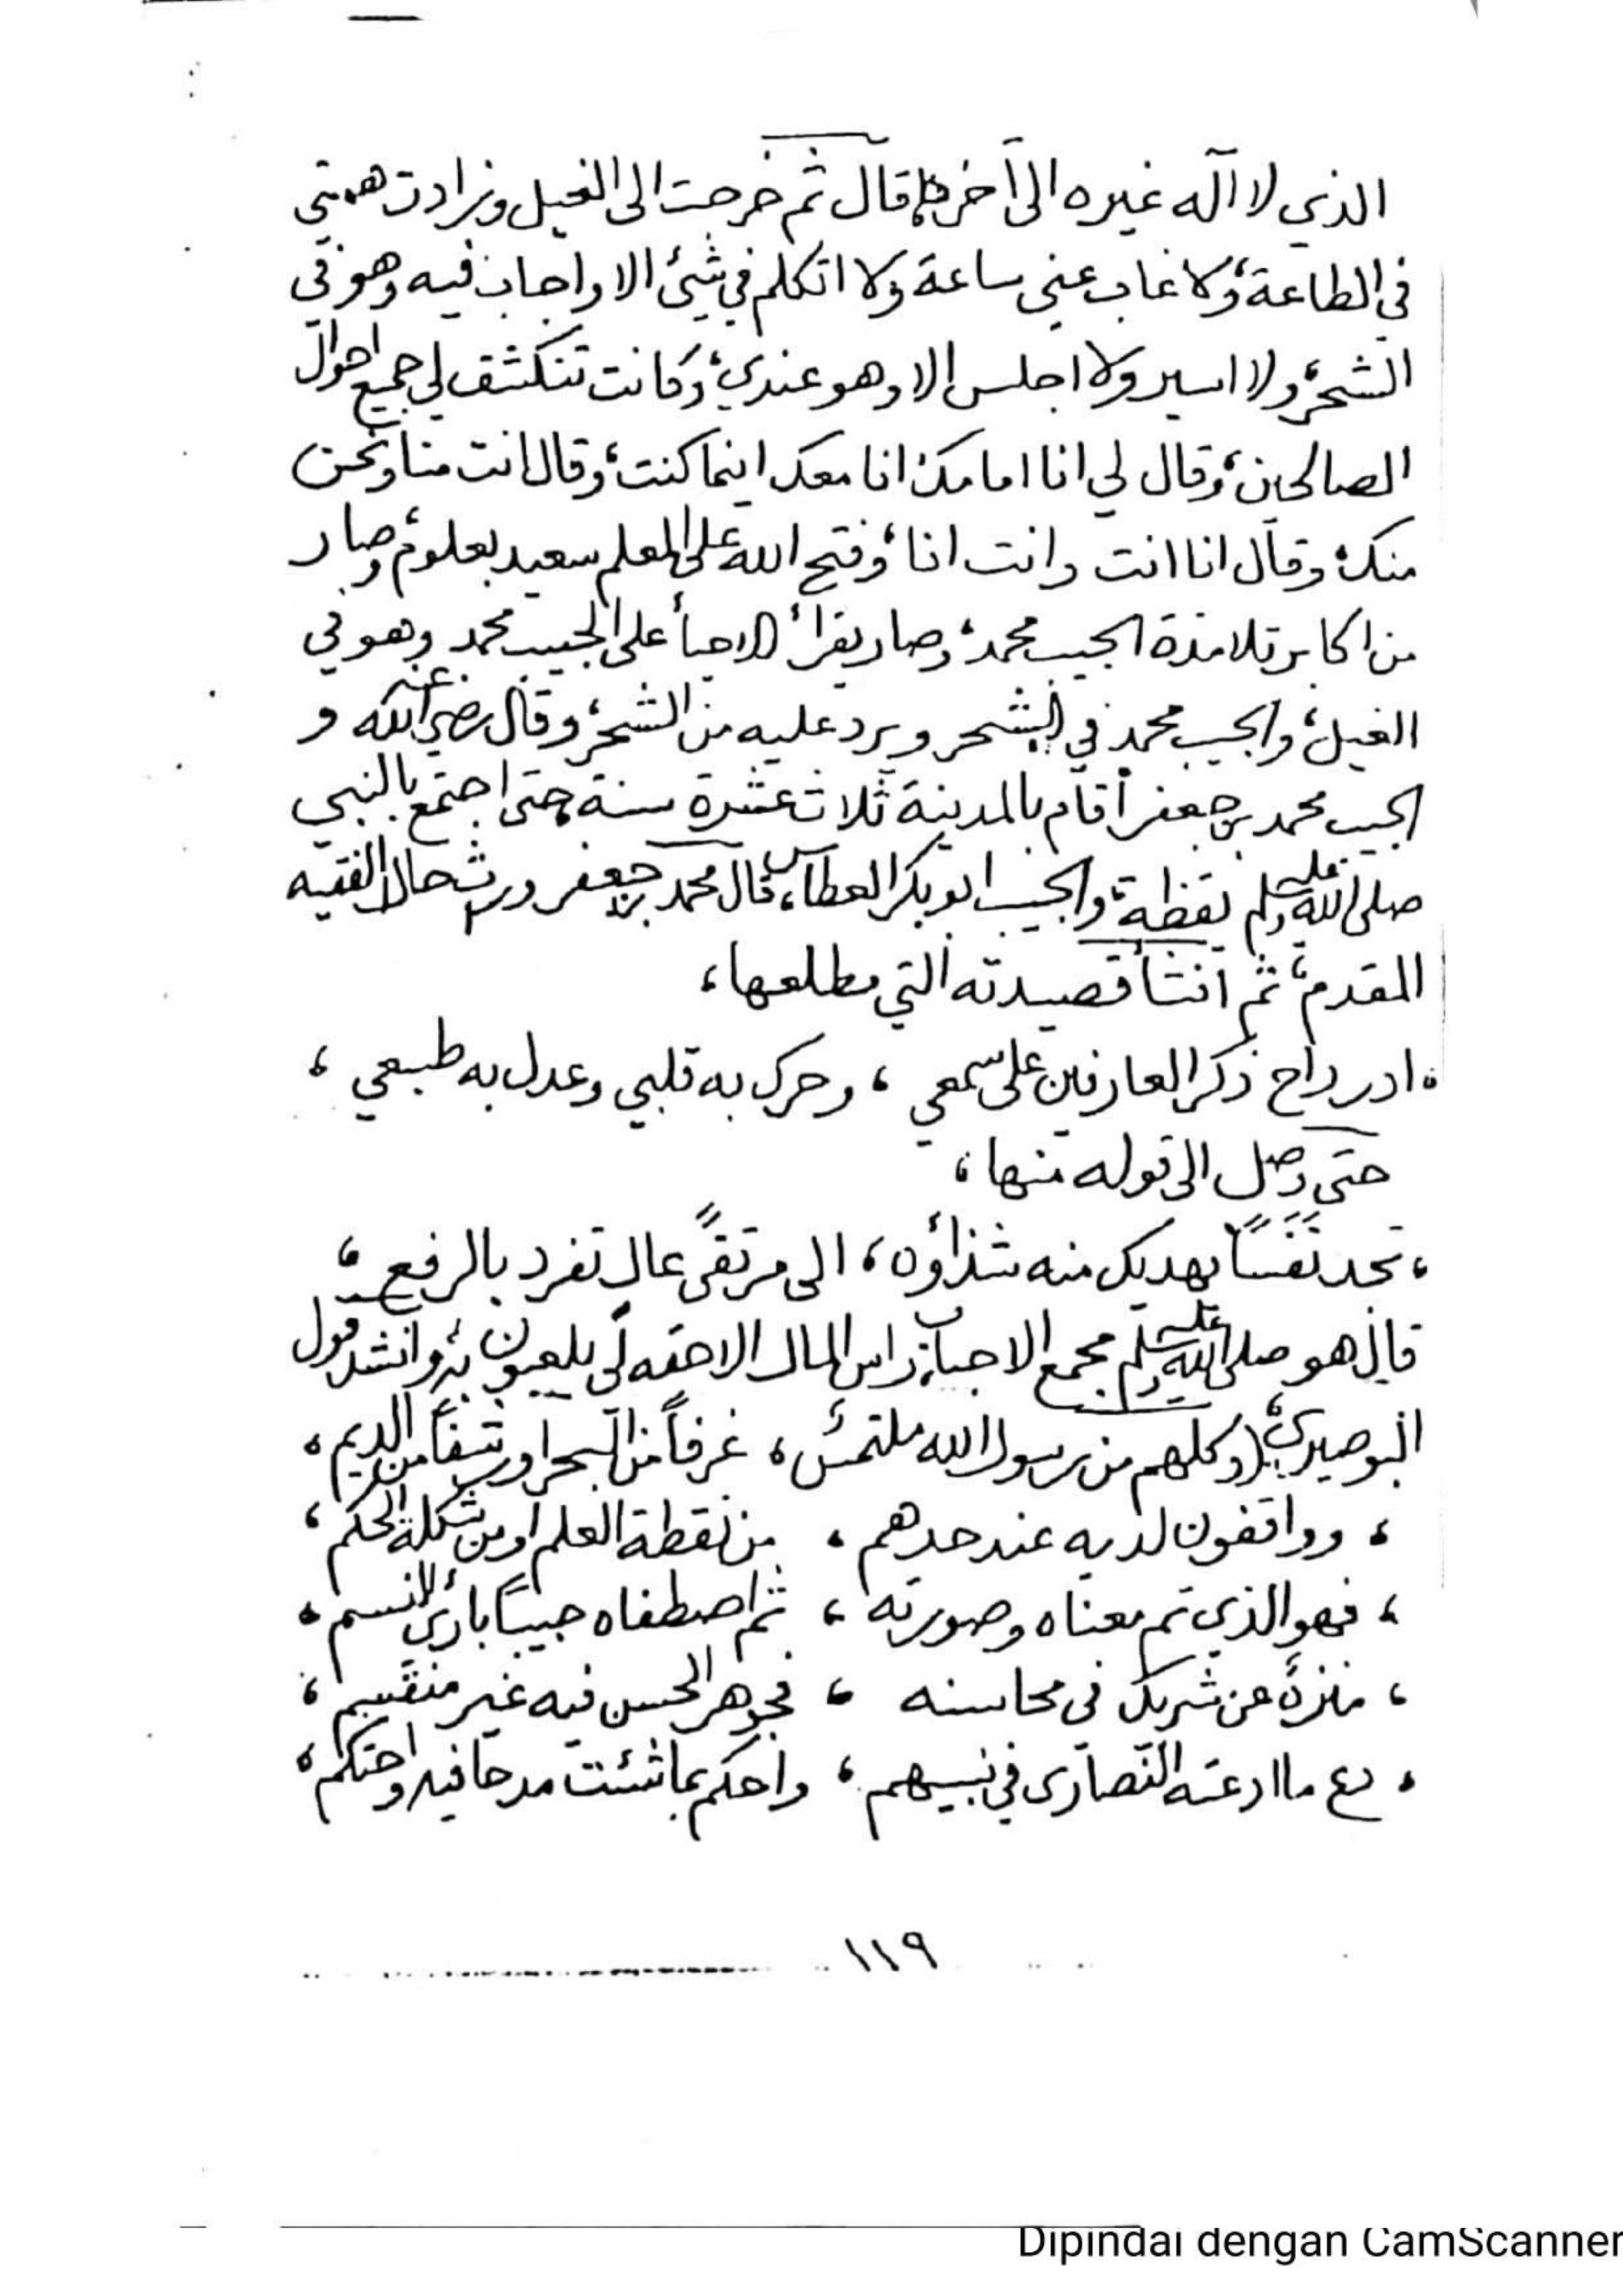 الذي لا اله غيره الى آخرها، قال ثم خرجت الى الغيل وزادت همتي
في الطاعة، ولا غاب عني ساعة ولا اتكلم في شيئ الا واجاب فيه وهو في
الشحر، ولا اسير ولا اجلس الا وهو عندي، وكانت تنكشف لي جميع احوال
الصالحين، وقال لي انا امامك، انا معك اينما كنت، وقال انت منا ونحن
منك، وقال انا انت وانت انا، وفتح الله على المعلم سعيد بعلوم، وصار
من اكابر تلامذة الحبيب محمد، وصار يقرأ الاحيأ على الحبيب محمد وهو في
الغيل، والحبيب محمد في الشحر ويرد عليه من الشحر، وقال رضي الله عنه و
الحبيب محمد بن جعفر أقام بالمدينة ثلاث عشرة سنة حتى اجتمع بالنبي
صلى الله عليه وسلم يقظة، والحبيب ابوبكر العطاس، قال محمد بن جعفر ورث حال الفقيه
المقدم، ثم انشأ قصيدته التي مطلعها،
، ادر راح ذكر العارفين على سمعي ، وحرك به قلبي وعدل به طبعي ،
حتى وصل الى قوله منها ،
، تجد نَفَسًا يهديك منه شذاؤه ، الى مرتقىً عال تفرد بالرفع ،
قال هو صلى الله عليه وسلم مجمع الاحباب، راس المال الا وانشد قول
البوصيري، (وكلهم من رسول الله ملتمسٌ ، غرفاً من البحر او رشفاً من الديم ،
، وواقفون لديه عند حدهم ، من نقطة العلم او من شكلة الحكم ،
، فهو الذي تم معناه وصورته ، ثم اصطفاه حبيبًا بارئ النسم ،
، منزهٌ عن شريك في محاسنه ، فجوهر الحسن فيه غير منقسم ،
، دع ما ادعته النصارى في نبيهم ، واحكم بما شئت مدحا فيه واحتكم ،
١١٩
Dipindai dengan CamScanner